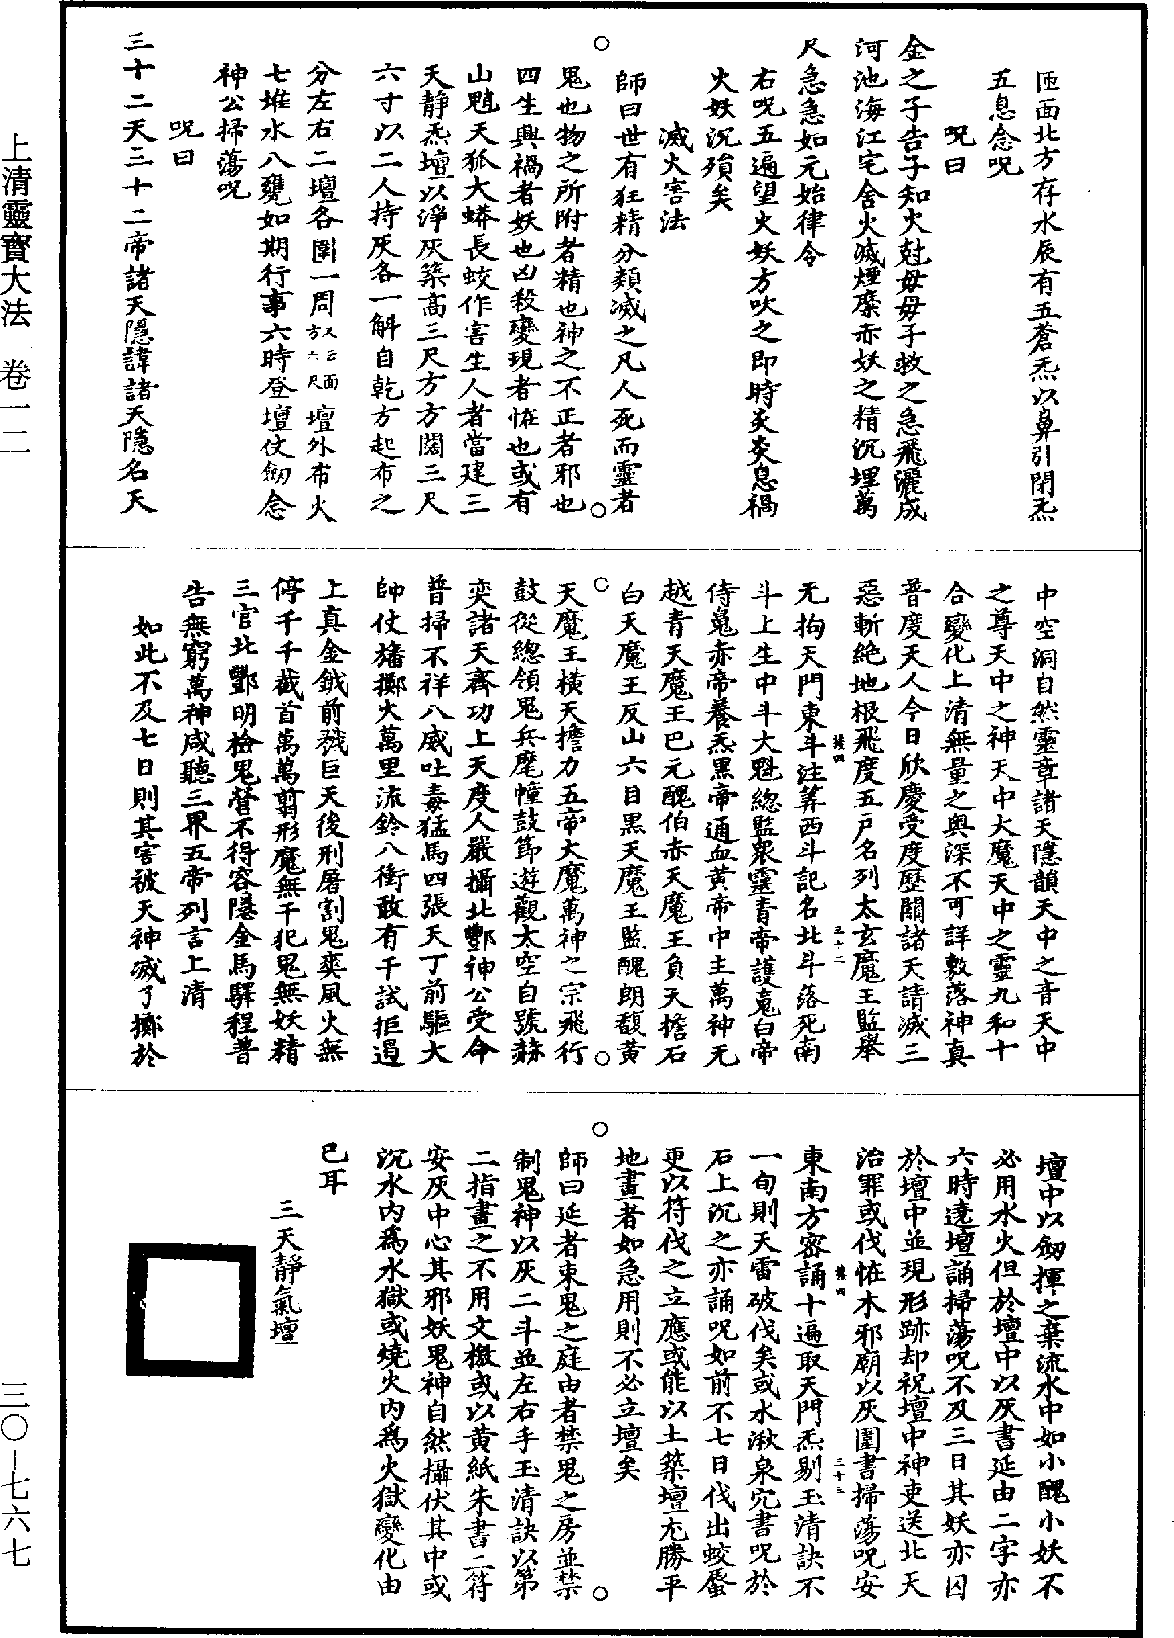 上清靈寶大法 卷一二
三〇－七六七
匝面北方存水辰有五蒼炁以鼻引閉炁
五息念呪
呪曰
金之子告子知火尅毋毋子救之急飛灑成
河池海江宅舍火滅煙縻赤妖之精沉埋萬
尺急急如元始律令
右呪五遍望火妖方吹之即時炎炎息禍
火妖沉殞矣
滅大害法
師曰世有狂精分類滅之凡人死而靈者
鬼也物之所附者精也神之不正者邪也
四生興禍者妖也凶殺變現者恠也或有
山魈天狐大蟒長蛟作害生人者當建三
天靜炁壇以淨灰築高三尺方方闊三尺
六寸以二人持灰各一斛自乾方起布之
分左右二壇各圍一周又云面方六尺壇外布火
七堆水八甕如期行事六時登壇仗劒念
神公掃蕩呪
呪曰
三十二天三十二帝諸天隱諱諸天隱名天
中空洞自然靈章諸天隱韻天中之音天中
之尊天中之神天中大魔天中之靈九和十
合變化上清無量之奧深不可詳敷落神真
普度天人今日欣慶受度歷關諸天請滅三
惡斬絶地根飛度五戶名列太玄魔王監舉
无拘天門東斗注筭西斗記名北斗落死南
斗上生中斗大魁總監衆靈青帝護䰟白帝
侍䰟赤帝養炁黑帝通血黃帝中主萬神无
越青天魔王巴元醜伯赤天魔王負天擔石
白天魔王反山六目黑天魔王監醜朗馥黃
天魔王橫天擔力五帝大魔萬神之宗飛行
鼓從總領鬼兵麾幢鼓節遊觀太空自號赫
奕諸天齊功上天度人嚴攝北酆神公受命
普掃不祥八威吐毒猛馬四張天丁前驅大
帥仗旛擲火萬里流鈴八衝敢有干試拒遏
上真金鉞前戮巨天後刑屠割鬼爽風火無
停千千截首萬萬剪形魔無干犯鬼無妖精
三官北酆明檢鬼營不得容隱金馬驛程普
告無窮萬神咸聽三界五帝列言上清
如此不及七日則其害被天神滅了擲於
壇中以劒揮之棄流水中如小醜小妖不
必用水火但於壇中以灰書延由二字亦
六時遶壇誦掃蕩呪不及三日其妖亦囚
於壇中並現形跡却祝壇中神吏送北天
治罪或伐恠木邪廟以灰圍書掃蕩呪安
東南方密誦十遍取天門炁剔玉清訣不
一旬則天雷破伐矣或水湫泉穴書呪於
石上沉之亦誦呪如前不七日伐出蛟蜃
更以符伐之立應或能以土築壇尤勝平
地畫者如急用則不必立壇矣
師曰延者束鬼之庭由者禁鬼之房並禁
制鬼神以灰二斗並左右手玉清訣以第
二指畫之不用文檄或以黃紙朱書二符
安灰中心其邪妖鬼神自然攝伏其中或
沉水內爲水獄或燒火內爲火獄變化由
已耳
三天靜氣壇